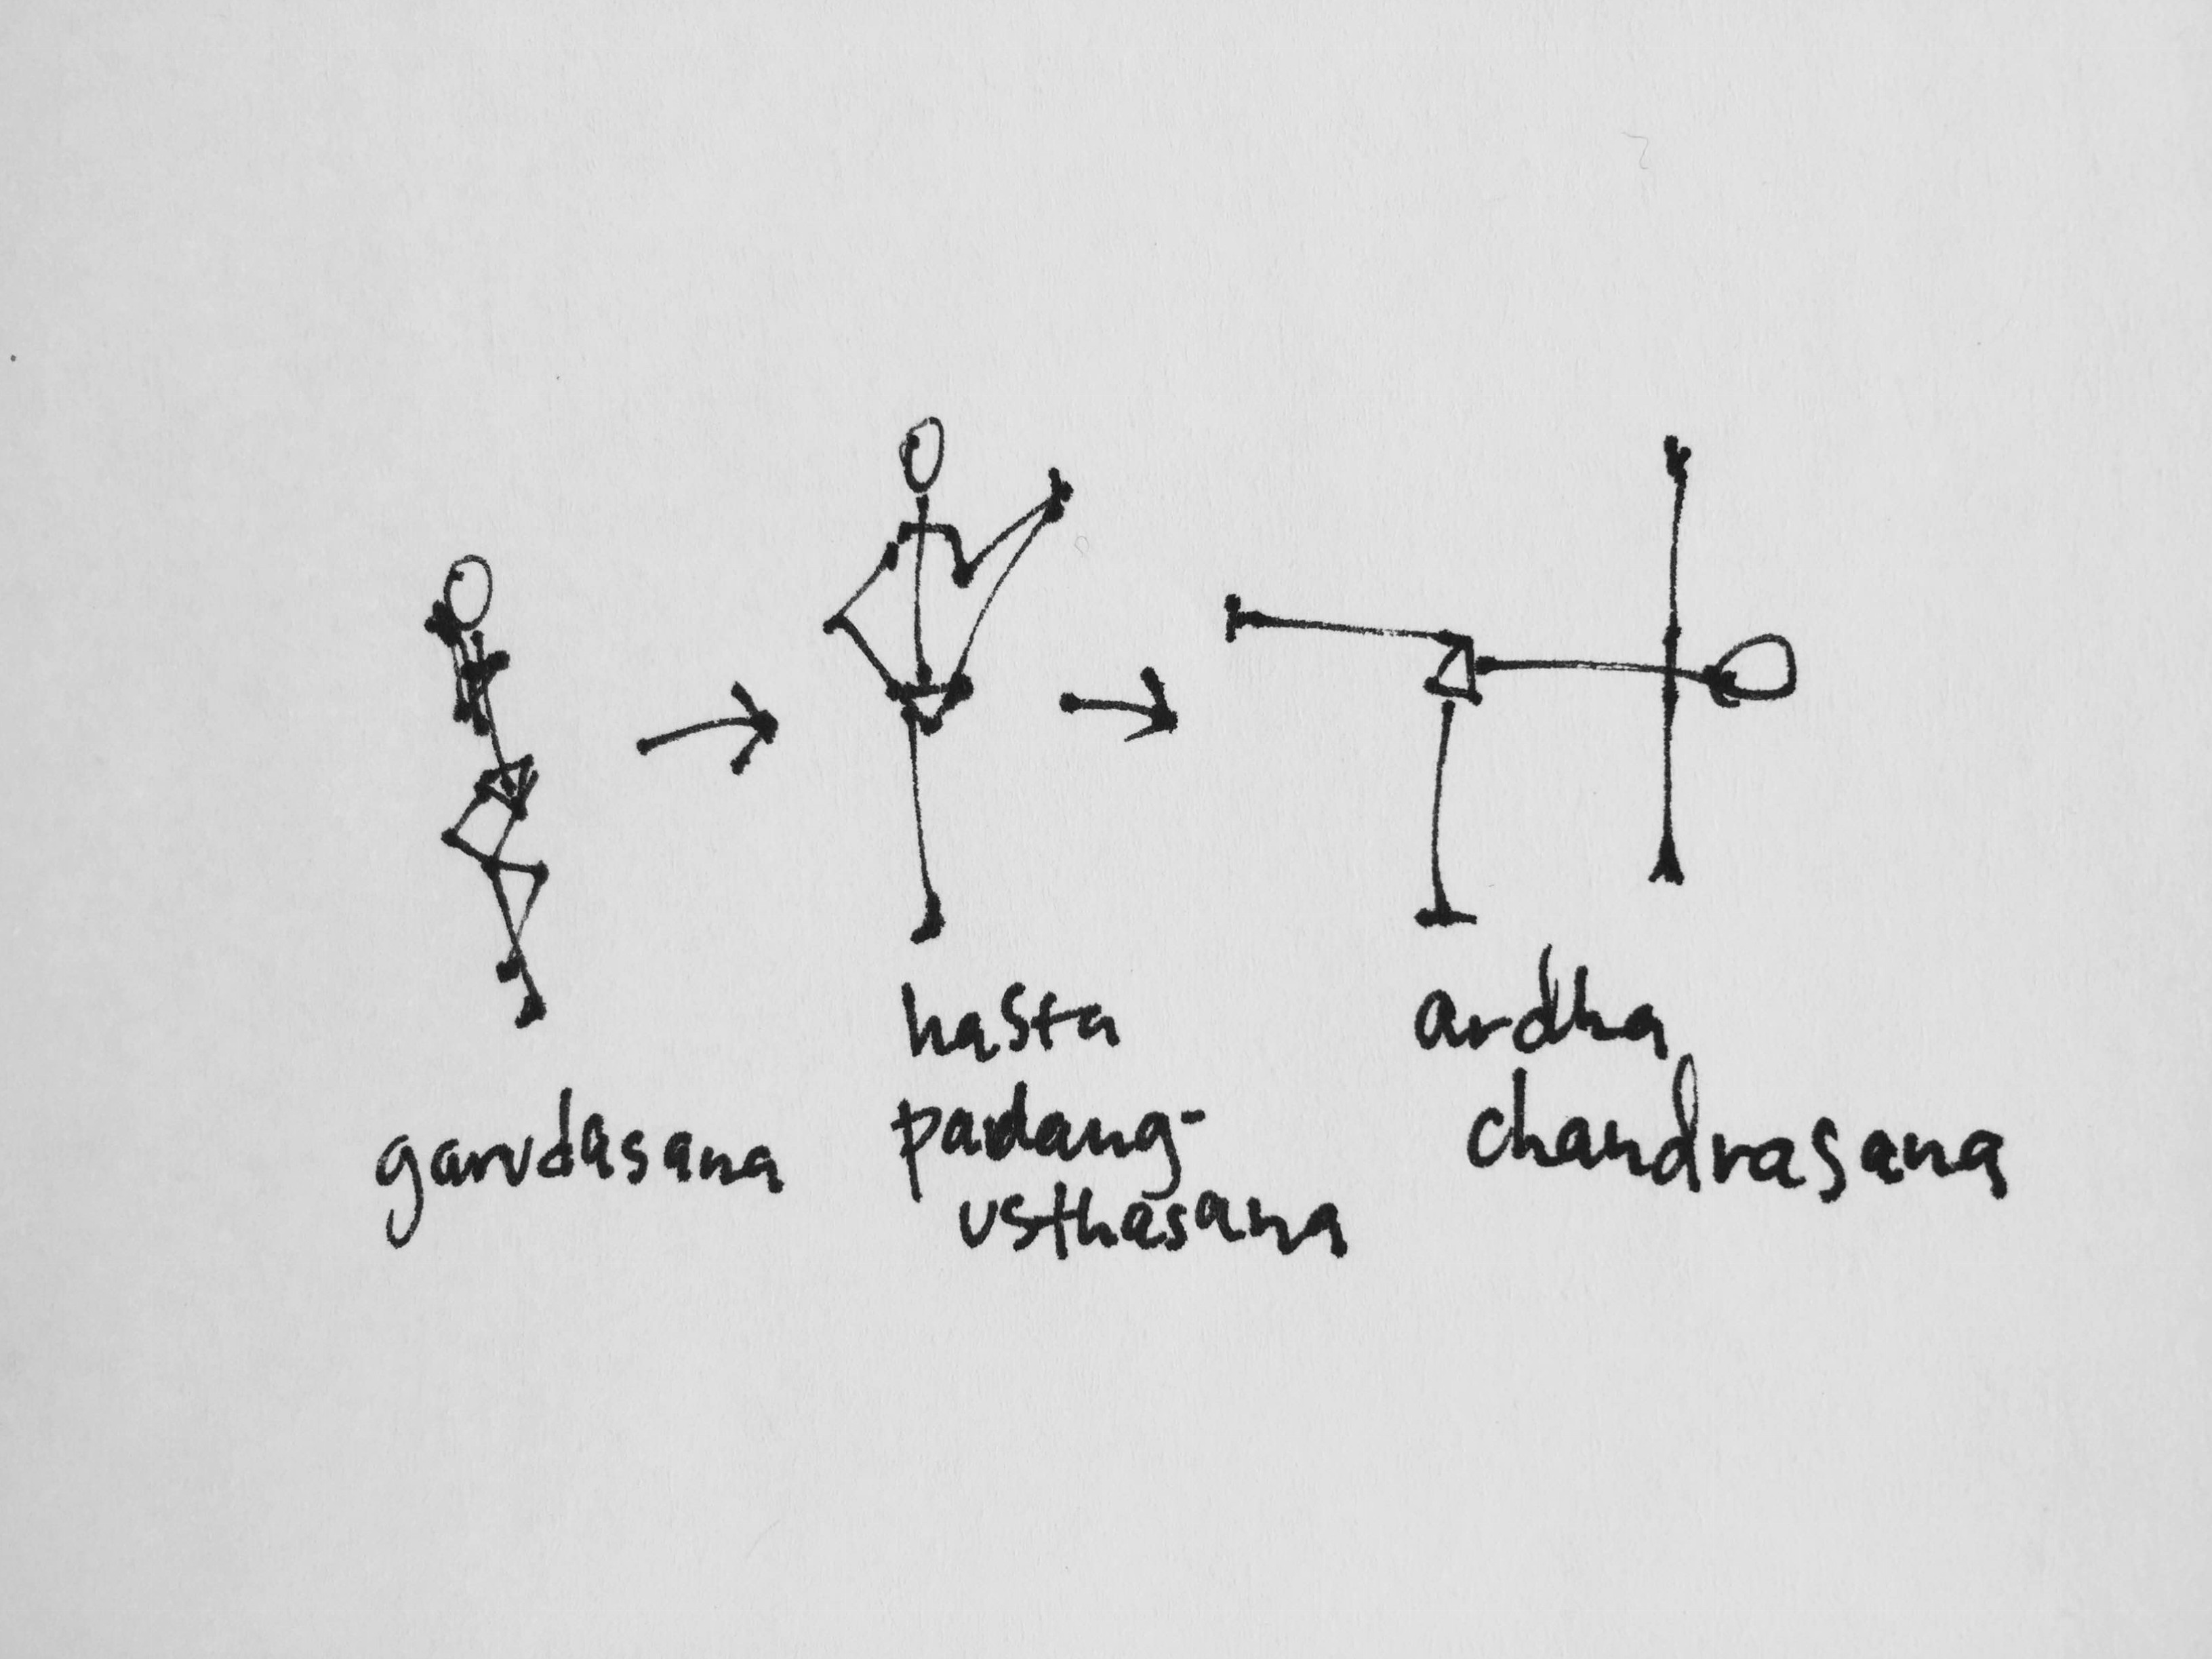 garudasana
hasta
padang-
usthasana
ardha
chandrasana